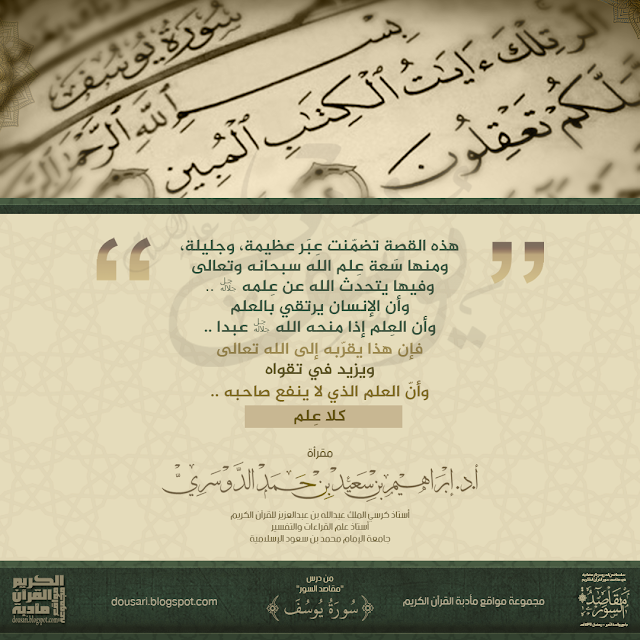 سُورَةُ يُوسُفَ
بِسْمِ اللَّهِ الرَّحْمَٰنِ
الر تِلْكَ ءَايَٰتُ الْكِتَٰبِ الْمُبِينِ
لَّعَلَّكُمْ تَعْقِلُونَ
هذه القصة تضمّنت عِبَر عظيمة، وجليلة،
ومنها سَعة عِلم الله سبحانه وتعالى
وفيها يتحدث الله عن عِلمه ﷻ ..
وأن الإنسان يرتقي بالعلم
وأن العِلم إذا منحه الله ﷻ عبدا ..
فإن هذا يقرّبه إلى الله تعالى
ويزيد في تقواه
وأنّ العلم الذي لا ينفع صاحبه ..
كلا عِلم
مقرأة
أ.د. إبراهيم بن سعيد بن حمد الدَّوسريّ
أستاذ كرسي الملك عبدالله بن عبدالعزيز للقرآن الكريم
أستاذ علم القراءات والتفسير
جامعة الإمام محمد بن سعود الإسلامية
مَقَاصِد السُّوَر
مجموعة مواقع مأدبة القرآن الكريم
من درس
"مقاصد السور"
سُورَةُ يُوسُفَ
dousari.blogspot.com
الكريم
القرآن
مأدبة
مجموعة مواقع
dousari.blogspot.com